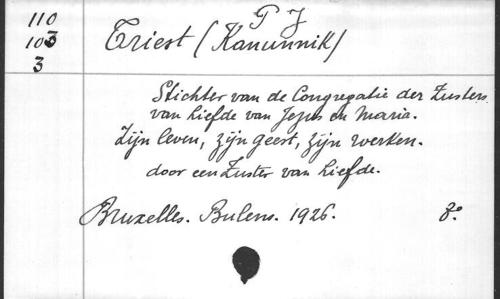 110
103
3
P J
Triest (Kanunnik)
Stichter van de Congregatie der Zusters
van Liefde van Jezus en Maria.
Zijn leven, zijn geest, zijn werken.
door een Zuster van Liefde.
Bruxelles. Bulens. 1926. 8o